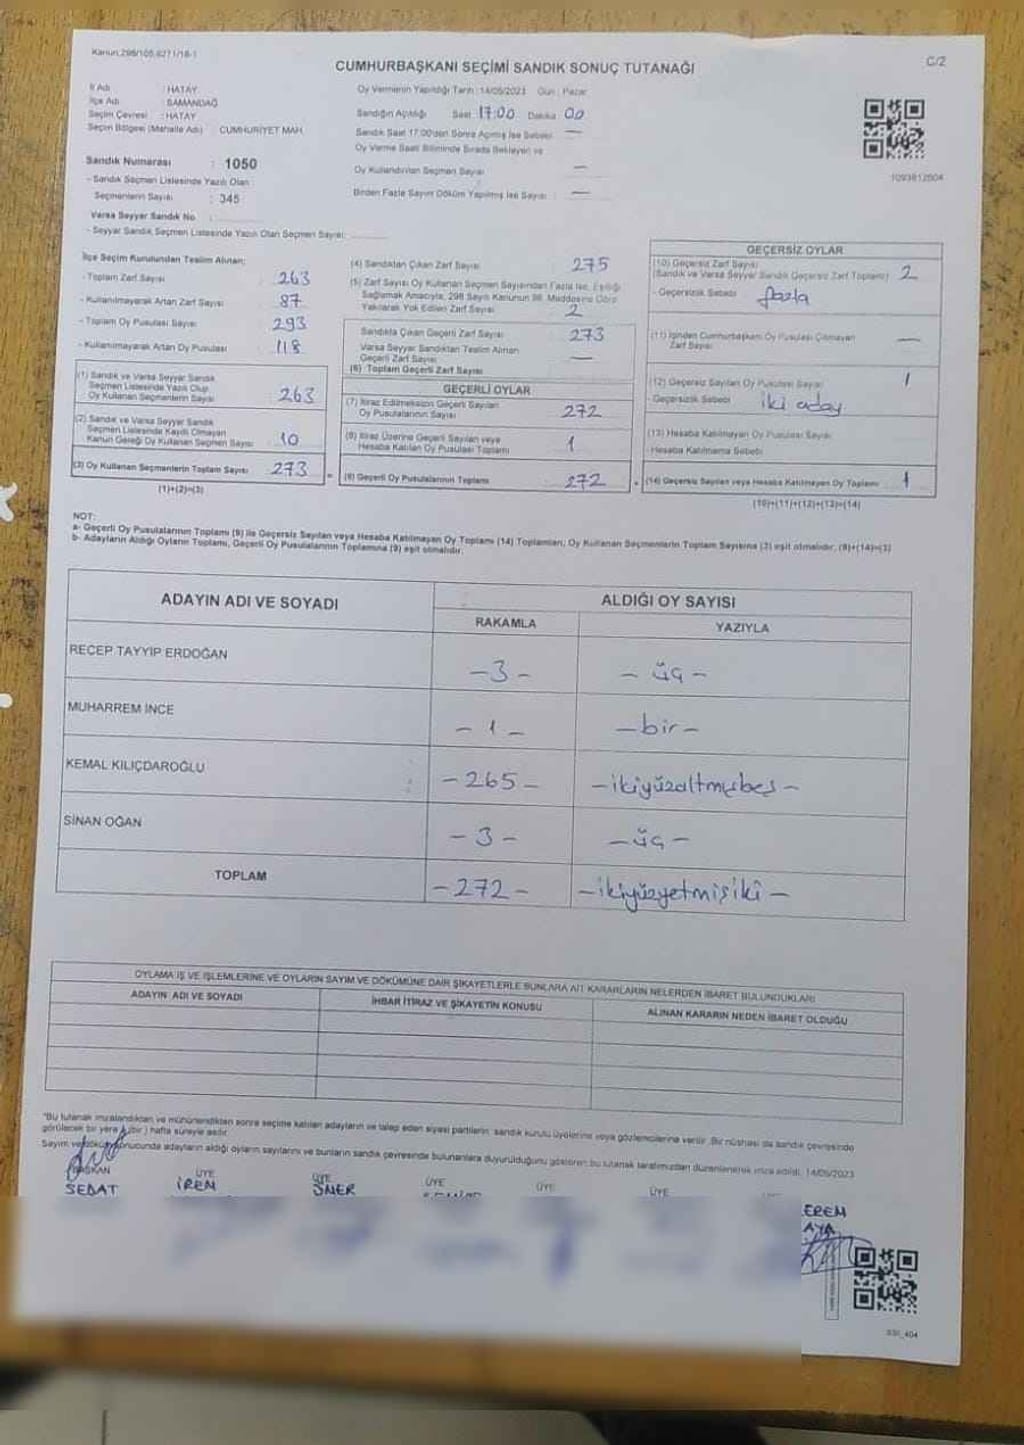 Kanun:298/105,6271/18-1
C/2
CUMHURBAŞKANI SEÇİMİ SANDIK SONUÇ TUTANAĞI
İl Adı : HATAY
İlçe Adı : SAMANDAĞ
Seçim Çevresi : HATAY
Seçim Bölgesi (Mahalle Adı) CUMHURİYET MAH.
Sandık Numarası : 1050
- Sandık Seçmen Listesinde Yazılı Olan
Seçmenlerin Sayısı : 345
Varsa Seyyar Sandık No :
- Seyyar Sandık Seçmen Listesinde Yazılı Olan Seçmen Sayısı:
Oy Vermenin Yapıldığı Tarih : 14/05/2023 Gün : Pazar
Sandığın Açıldığı Saat 17:00 Dakika 00
Sandık Saat 17:00'den Sonra Açılmış İse Sebebi —
Oy Verme Saati Bitiminde Sırada Bekleyen ve
Oy Kullandırılan Seçmen Sayısı —
Birden Fazla Sayım Döküm Yapılmış İse Sayısı : —
1093812504
İlçe Seçim Kurulundan Teslim Alınan:
- Toplam Zarf Sayısı 263
- Kullanılmayarak Artan Zarf Sayısı 87
- Toplam Oy Pusulası Sayısı 293
- Kullanılmayarak Artan Oy Pusulası 118
(1) Sandık ve Varsa Seyyar Sandık
Seçmen Listesinde Yazılı Olup
Oy Kullanan Seçmenlerin Sayısı 263
(2) Sandık ve Varsa Seyyar Sandık
Seçmen Listesinde Kayıtlı Olmayan
Kanun Gereği Oy Kullanan Seçmen Sayısı 10
(3) Oy Kullanan Seçmenlerin Toplam Sayısı 273
(1)+(2)=(3)
(4) Sandıktan Çıkan Zarf Sayısı 275
(5) Zarf Sayısı Oy Kullanan Seçmen Sayısından Fazla İse, Eşitliği
Sağlamak Amacıyla, 298 Sayılı Kanunun 98. Maddesine Göre
Yakılarak Yok Edilen Zarf Sayısı 2
Sandıkta Çıkan Geçerli Zarf Sayısı 273
Varsa Seyyar Sandıktan Teslim Alınan
Geçerli Zarf Sayısı —
(6) Toplam Geçerli Zarf Sayısı
GEÇERLİ OYLAR
(7) İtiraz Edilmeksizin Geçerli Sayılan
Oy Pusulalarının Sayısı 272
(8) İtiraz Üzerine Geçerli Sayılan veya
Hesaba Katılan Oy Pusulası Toplamı 1
(9) Geçerli Oy Pusulalarının Toplamı 272
GEÇERSİZ OYLAR
(10) Geçersiz Zarf Sayısı
(Sandık ve Varsa Seyyar Sandık Geçersiz Zarf Toplamı) 2
- Geçersizlik Sebebi fazla
(11) İçinden Cumhurbaşkanı Oy Pusulası Çıkmayan
Zarf Sayısı —
(12) Geçersiz Sayılan Oy Pusulası Sayısı 1
- Geçersizlik Sebebi iki aday
(13) Hesaba Katılmayan Oy Pusulası Sayısı
- Hesaba Katılmama Sebebi
(14) Geçersiz Sayılan veya Hesaba Katılmayan Oy Toplamı 1
(10)+(11)+(12)+(13)=(14)
NOT:
a- Geçerli Oy Pusulalarının Toplamı (9) ile Geçersiz Sayılan veya Hesaba Katılmayan Oy Toplamı (14) Toplamları, Oy Kullanan Seçmenlerin Toplam Sayısına (3) eşit olmalıdır. (9)+(14)=(3)
b- Adayların Aldığı Oyların Toplamı, Geçerli Oy Pusulalarının Toplamına (9) eşit olmalıdır.
ADAYIN ADI VE SOYADI ALDIĞI OY SAYISI
RAKAMLA YAZIYLA
RECEP TAYYİP ERDOĞAN -3- - üç -
MUHARREM İNCE - 1 - - bir -
KEMAL KILIÇDAROĞLU -265- -ikiyüzaltmışbeş-
SİNAN OĞAN -3- - üç -
TOPLAM -272- -ikiyüzyetmişiki-
OYLAMA İŞ VE İŞLEMLERİNE VE OYLARIN SAYIM VE DÖKÜMÜNE DAİR ŞİKAYETLERLE BUNLARA AİT KARARLARIN NELERDEN İBARET BULUNDUKLARI
ADAYIN ADI VE SOYADI İHBAR İTİRAZ VE ŞİKAYETİN KONUSU ALINAN KARARIN NEDEN İBARET OLDUĞU
"Bu tutanak imzalandıktan ve mühürlendikten sonra seçime katılan adayların ve talep eden siyasi partilerin, sandık kurulu üyelerine veya gözlemcilerine verilir. Bir nüshası da sandık çevresinde
görülecek bir yere 1 (bir) hafta süreyle asılır.
Sayım ve döküm sonucunda adayların aldığı oyların sayılarını ve bunların sandık çevresinde bulunanlara duyurulduğunu gösteren bu tutanak tarafımızdan düzenlenerek imza edildi. 14/05/2023
BAŞKAN ÜYE ÜYE ÜYE ÜYE ÜYE
SEDAT İREM ÖMER
EREM
AYA